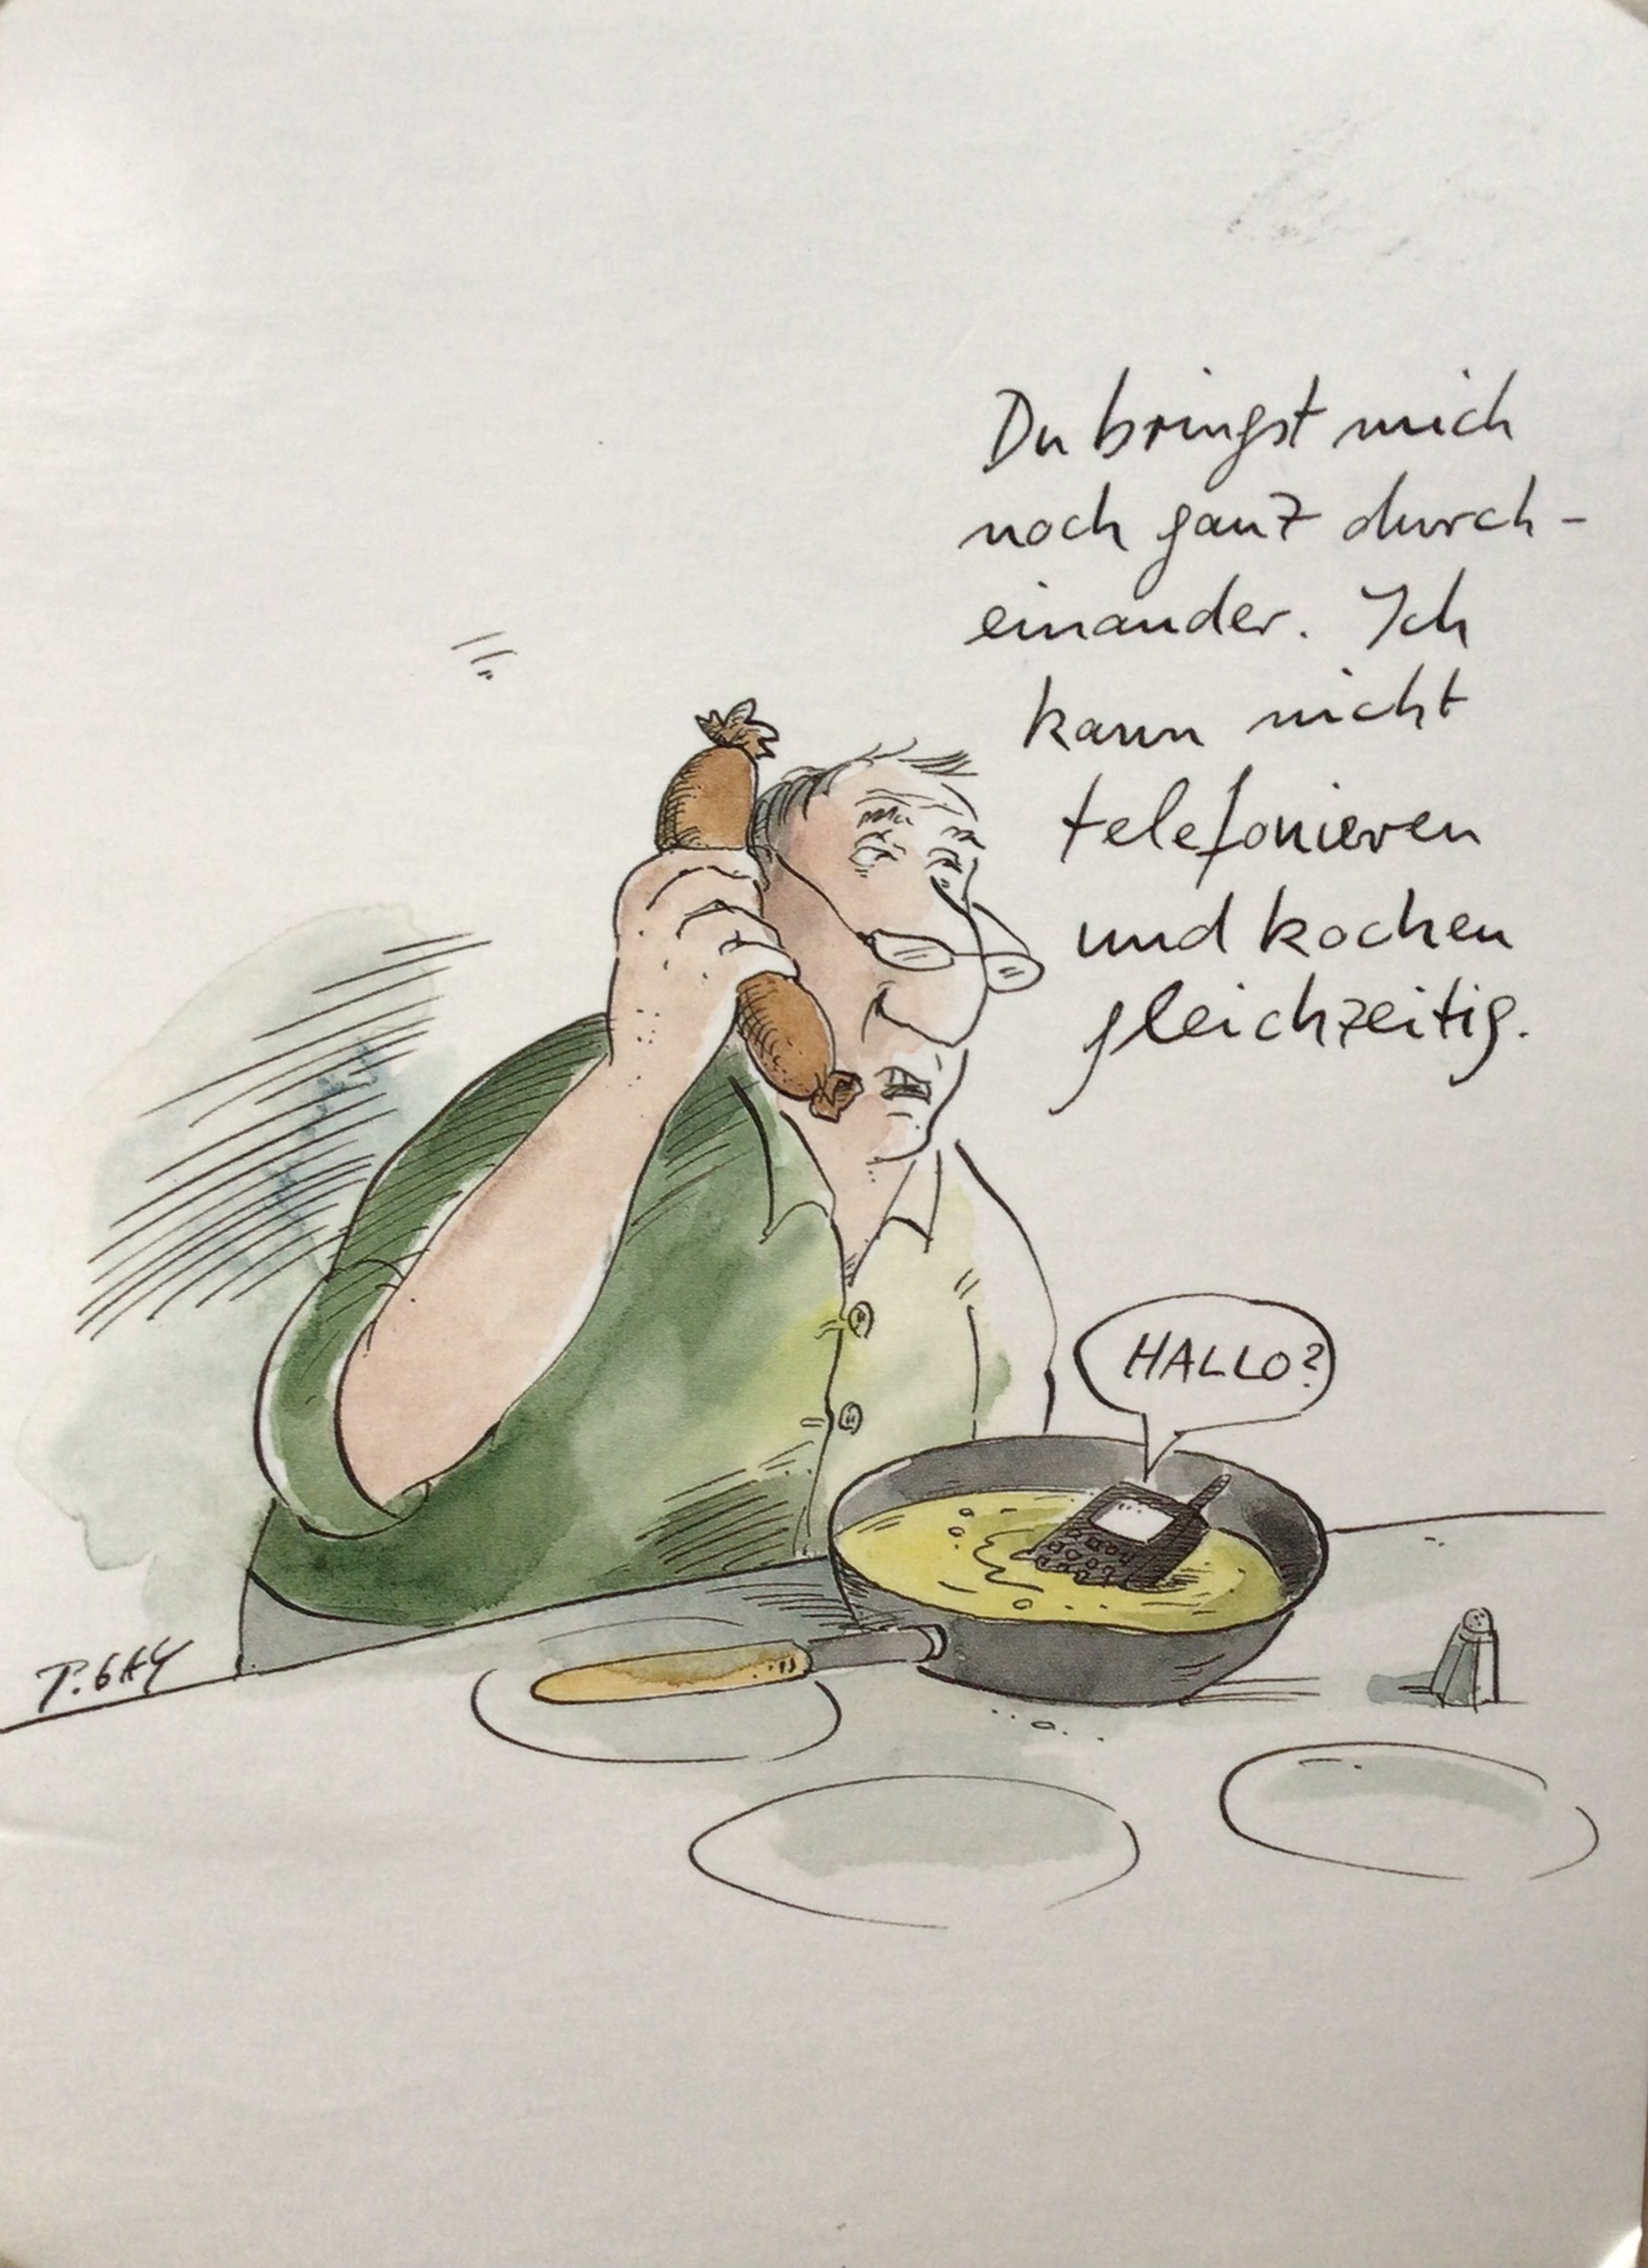 Du bringst mich
noch ganz durch-
einander. Ich
kann nicht
telefonieren
und kochen
gleichzeitig.
HALLO?
P. GAY